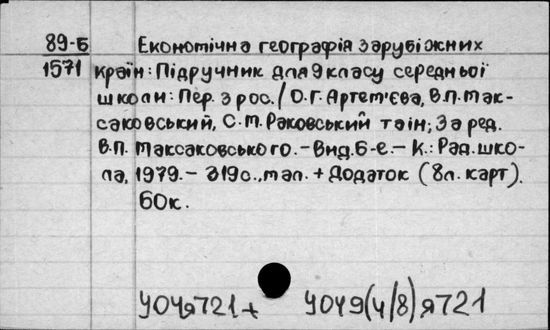 89-Б Економічна географія зарубіжних
1571 країн: Підручник для 9 класу середньої
школи: Пер. з рос. / О.Г. Артем'єва, В.П. Мак-
саковський, С.М. Раковський та ін; За ред.
В.П. Максаковського. - Вид. 6-е. - К.: Рад. шко-
ла, 1979. - 319с., мал. + Додаток (8л. карт).
60к.
У04я721+ У049(4/8)я721